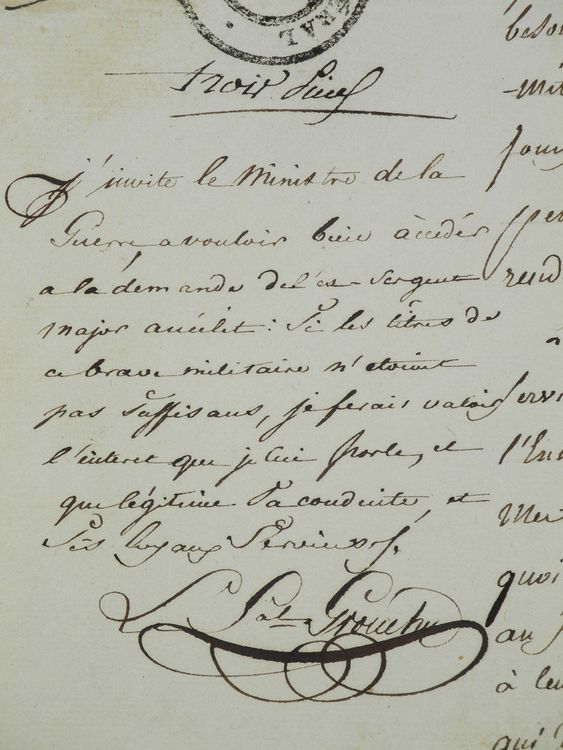 RAL
trois Pièces
J'invite le Ministre de la
Guerre a vouloir bien àccédér
a la demande de l'ex-Sergent
major ancélet: Si les titres de
ce brave militaire n'etoient
pas Suffisans, je ferais valoir
l'interet que je lui porte, et
que légitime Sa conduite, et
Ses loyaux Services.
Le Gal Grouchy
beso
-mit
jour
per
rend
l'En
Mer
quoi
au
à leu
qui